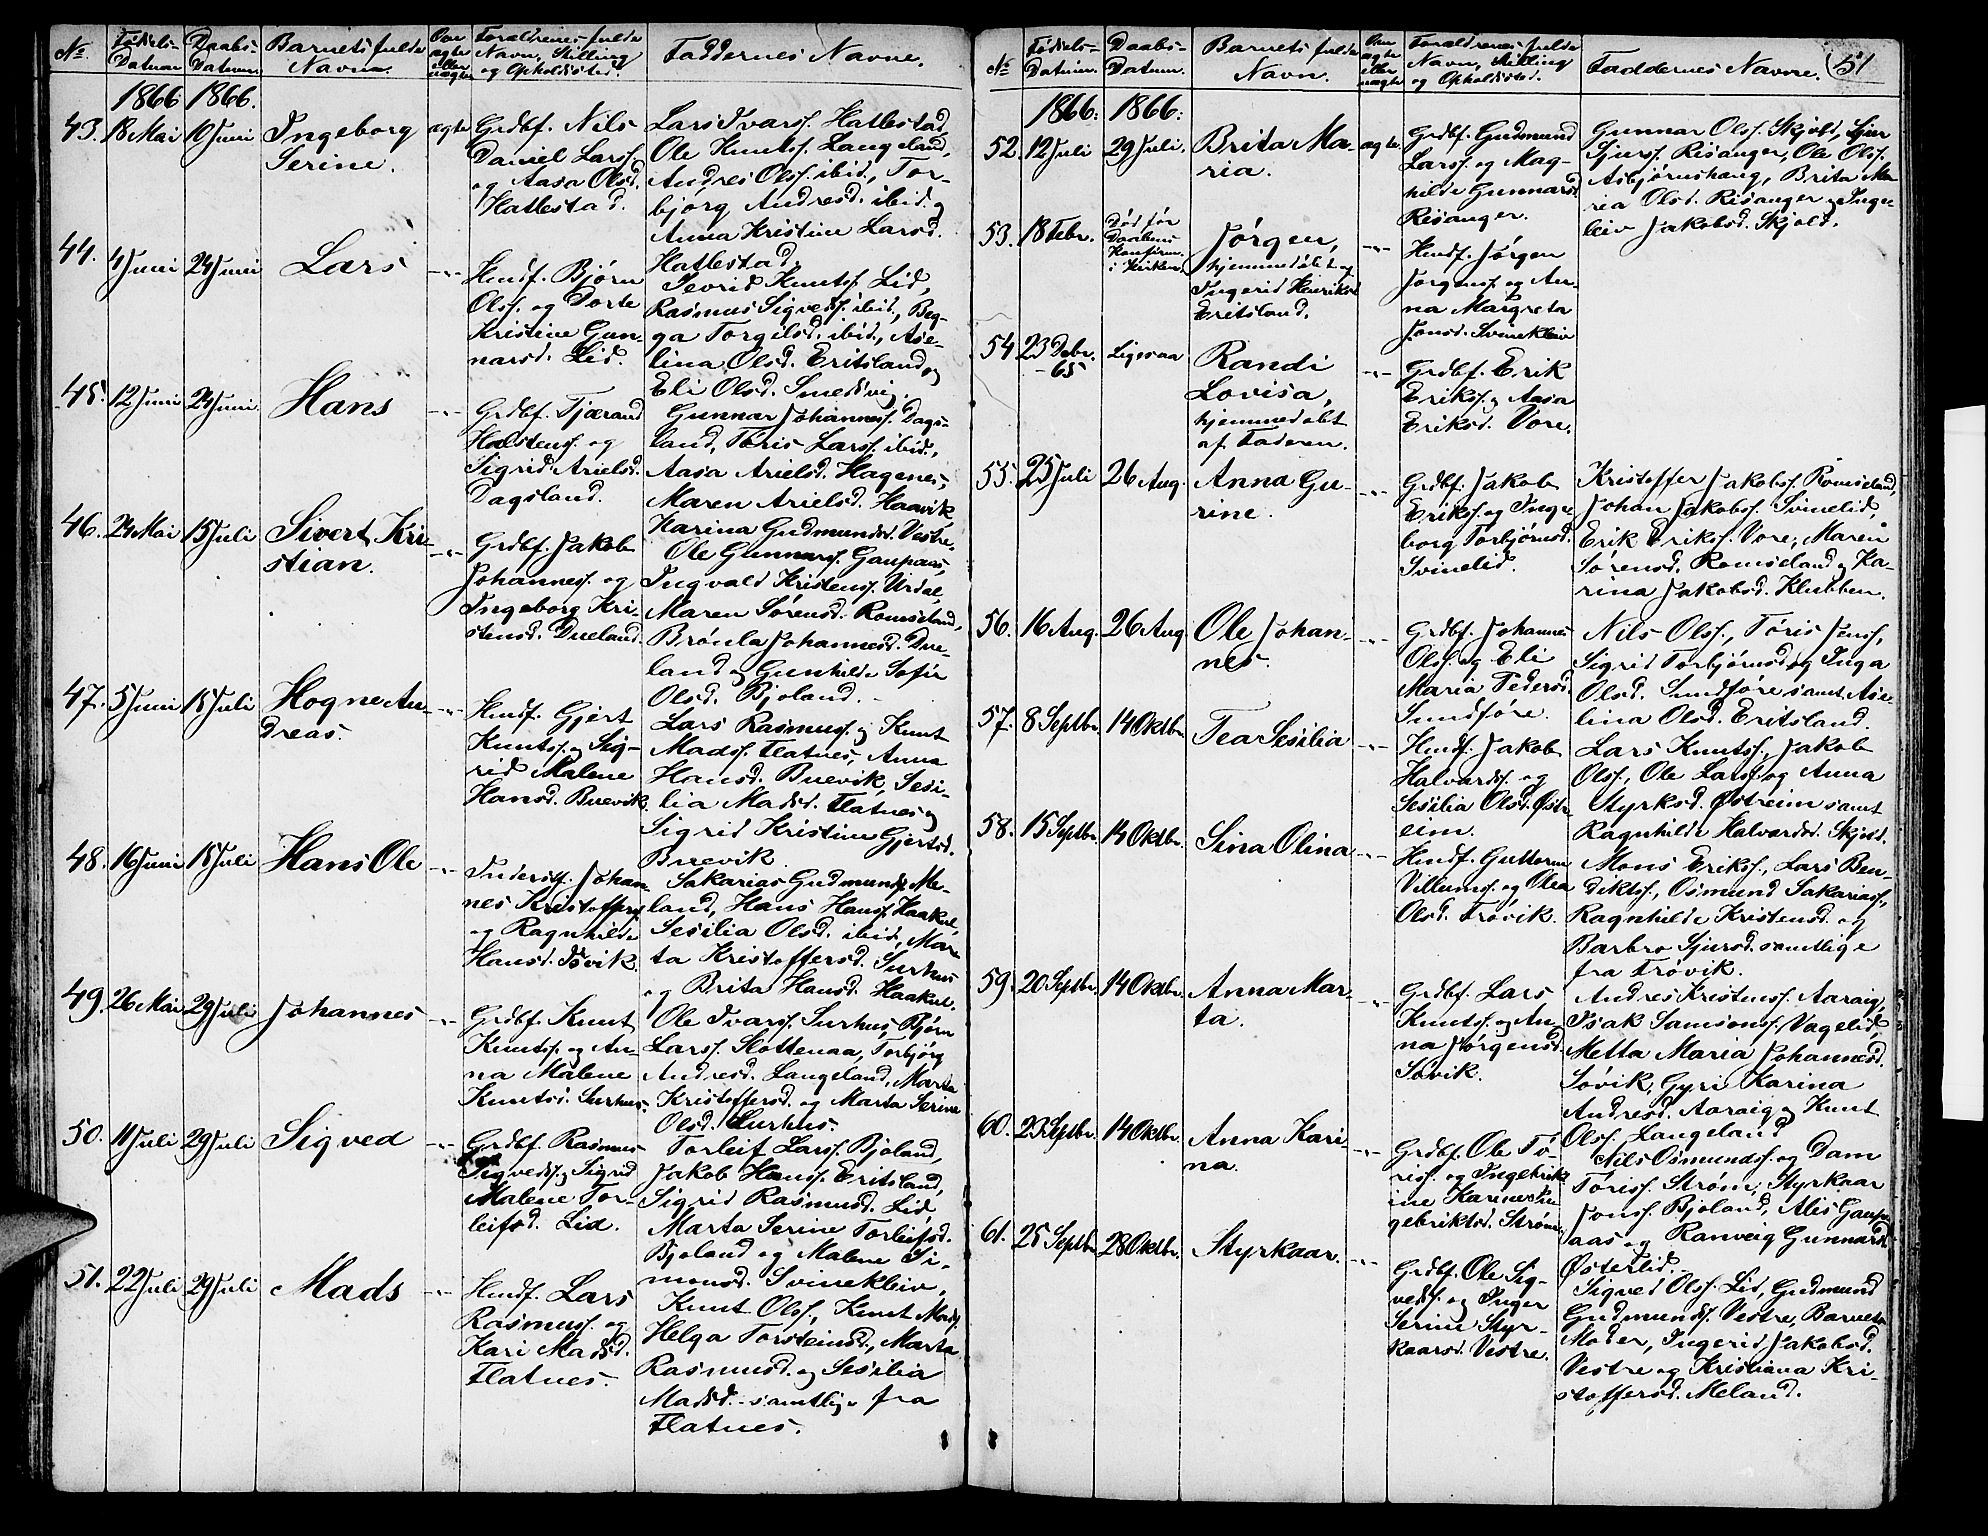 No.
Fødsels-
Datum
Daabs-
Datum.
Barnets fulde
Navn.
Om
ægte
eller
uægte
Forældrenes fulde
Navn, Stilling
og Opholdssted.
Faddernes Navne.
1866 1866.
43. 18 Mai 10 Juni Ingeborg
Serine.
ægte
Grdbf. Nils
Daniel Larss.
og Aasa Olsd.
Hatlestad.
Lars Ivarss. Hatlestad,
Ole Knutss. Langeland,
Andres Olss. ibid., Tor-
bjørg Andresd. ibid. og
Anna Kristine Larsd.
Hatlestad.
44. 4 Juni 24 Juni Lars
-"-
Husf. Bjørn
Olss. og Dorte
Kristine Gun-
narsd. Lid.
Sevrid Knutss. Lid,
Rasmus Sigvedss. ibid., Beg-
ga Torgilsd. ibid., Ase-
lina Olsd. Eritsland og
Eli Olsd. Smedsvig.
45. 12 Juni 24 Juni Hans
-"-
Grdbf. Tjærand
Halstenss. og
Sigrid Arielsd.
Dagsland.
Gunnar Johanness. Dags-
land, Tøris Larss. ibid.,
Aasa Arielsd. Hagenes,
Maren Arielsd. Haavik
Karina Gudmundsd. Vestre.
46. 24 Mai 15 Juli Sivert Kri-
stian.
-"-
Grdbf. Jakob
Johanness. og
Ingeborg Kri-
stensd. Dueland.
Ole Gunnarss. Gaupaas,
Ingvald Kristenss. Urdal,
Maren Sørensd. Romseland,
Brønla Johannesd. Due-
land og Gunhilde Sofie
Olsd. Bjoland.
47. 5 Juni 15 Juli Hogne An-
dreas.
-"-
Husf. Gjert
Knutss. og Sig-
rid Malene
Hansd. Buevik.
Lars Rasmuss. og Knut
Madss. Flatnes, Anna
Hansd. Buevik, Sesi-
lia Madsd. Flatnes og
Sigrid Kristine Gjertsd.
Buevik.
48. 16 Juni 15 Juli Hans Ole
-"-
Inderst. Johan-
nes Kristofferss.
og Ragnhilde
Hansd. Isvik.
Sakarias Gudmundss. Me-
land, Hans Hanss. Haakul,
Sesilia Olsd. ibid., Mare-
ta Kristoffersd. Surhus
og Brita Hansd. Haakul.
49. 26 Mai 29 Juli Johannes
-"-
Grdbf. Knut
Knutss. og An-
na Malene
Knutsd. Surhus.
Ole Ivarss. Surhus, Bjørn
Larss. Slottenaa, Torbjørg
Andresd. Langeland, Marta
Kristoffersd. og Marta Serine
Olsd. Surhus.
50. 11 Juli 29 Juli Sigved
-"-
Grdbf. Rasmus
Sigvedss. og Sigrid
Malene Tor-
leifsd. Lid.
Torleif Larss. Bjoland,
Jakob Hanss. Eritsland,
Sigrid Rasmusd. Lid
Marta Serine Torleifsd.
Bjoland og Malene Si-
monsd. Svinekleiv.
51. 22 Juli 29 Juli Mads
-"-
Husf. Lars
Rasmuss. og
Kari Madsd.
Flatnes.
Knut Olss., Knut Madss.
Helga Torsteinsd., Marta
Rasmusd. og Sesilia
Madsd. samtlige fra
Flatnes.
No
Fødsels-
Datum.
Daabs-
Datum.
Barnets fulde
Navn.
Om
ægte
eller
uægte
Forældrenes fulde
Navn, Stilling
og Opholdssted.
Faddernes Navne.
51
1866. 1866.
52. 12 Juli 29 Juli. Brita Ma-
ria.
ægte.
Grdbf. Gudmund
Larss. og Mag-
hilde Gunnarsd.
Risanger.
Gunnar Olss. Skjold, Sjur
Sjurss. Risanger, Ole Olss.
Asbjørnshaug, Brita Ma-
ria Olsd. Risanger og Inge-
leiv Jakobsd. Skjold.
53. 18 Febr.
Død før
Daabens
Konfirm.
i Kirken.
Jørgen,
hjemmedøbt af
Ingerid Henriksd.
Eritsland.
-"-
Husf. Jørgen
Jørgenss. og An-
na Margreta
Jonsd. Svinekleiv
54 23 Debr.
- 65
Ligesaa
Randi
Lovisa,
hjemmedøbt
af Faderen.
-"-
Grdbf. Erik
Erikss. og Aasa
Eriksd. Vore.
55. 25 Juli 26 Aug. Anna Gu-
rine.
-"-
Grdbf. Jakob
Erikss. og Inge-
borg Torbjørnsd.
Svinelid.
Kristoffer Jakobss. Romseland,
Johan Jakobss. Svinelid,
Erik Erikss. Vore, Maren
Sørensd. Romseland og Ka-
rina Jakobsd. Klubben.
56. 16 Aug. 26 Aug. Ole Johan-
nes.
-"-
Grdbf. Johannes
Olss. og Eli
Maria Pedersd.
Sundføre.
Nils Olss., Tøris Jenss,
Sigrid Torbjørnsd. og Inga
Olsd. Sundføre samt Ase-
lina Olsd. Eritsland.
57. 8 Septbr. 14 Oktbr. Tea Sesilia
-"-
Husf. Jakob
Halvardss. og
Sesilia Olsd. Østr-
eim.
Lars Knutss., Jakob
Olss., Ole Larss. og Anna
Styrksd. Østreim samt
Ragnhilde Halvardsd. Skjold.
58. 15 Septbr. 14 Oktbr. Sina Olina
-"-
Husf. Guttorm
Villumss. og Olea
Olsd. Trøvik.
Mons Erikss., Lars Ben-
diktss., Osmund Sakariass.,
Ragnhilde Kristensd. og
Barbro Sjursd. samtlige
fra Trøvik.
59. 20 Septbr. 14 Oktbr. Anna Mar-
ta.
-"-
Grdbf. Lars
Knutss. og An-
na Jørgensd.
Søvik.
Andres Kristenss. Aaraig,
Isak Samsonss. Vagelid
Metta Maria Johannesd.
Søvik, Gyri Karina
Andresd. Aaraig og Knut
Olss. Langeland
60. 23 Septbr. 14 Oktbr. Anna Kari-
na.
-"-
Grdbf. Ole Tø-
riss. og Ingebrik-
ine Karine In-
gebriktsd. Strøm
Nils Osmundss. og Dam
Tøriss. Strøm, Styrkaar
Jonss. Bjoland, Alis Gaup-
aas og Ranveig Gunnarsd.
Østerlid.
61. 25 Septbr. 28 Oktbr. Styrkaar.
-"-
Grdbf. Ole Sig-
vedss. og Inger
Serine Styr-
kaarsd. Vestre.
Sigved Olss. Lid, Gudmund
Gudmundss. Vestre, Barnets
Moder, Ingerid Jakobsd.
Vestre og Kristiana Kri-
stoffersd. Meland.